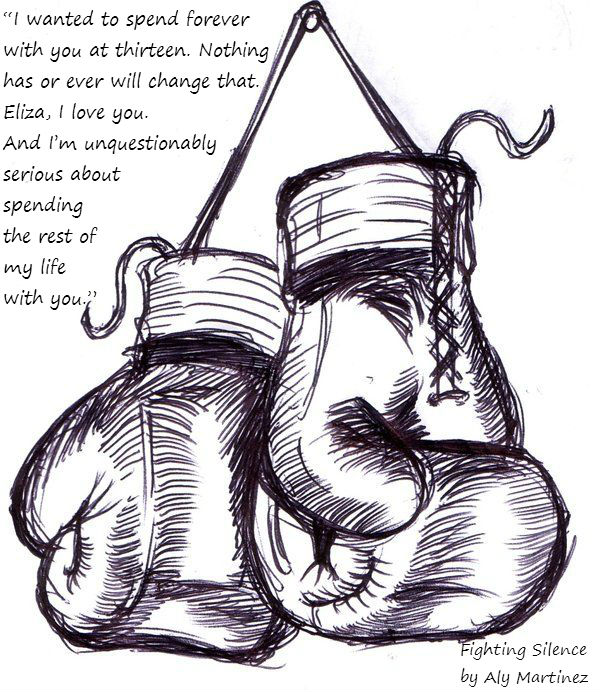 “I wanted to spend forever
with you at thirteen. Nothing
has or ever will change that.
Eliza, I love you.
And I'm unquestionably
serious about
spending
the rest of
my life
with you.”
Fighting Silence
by Aly Martinez